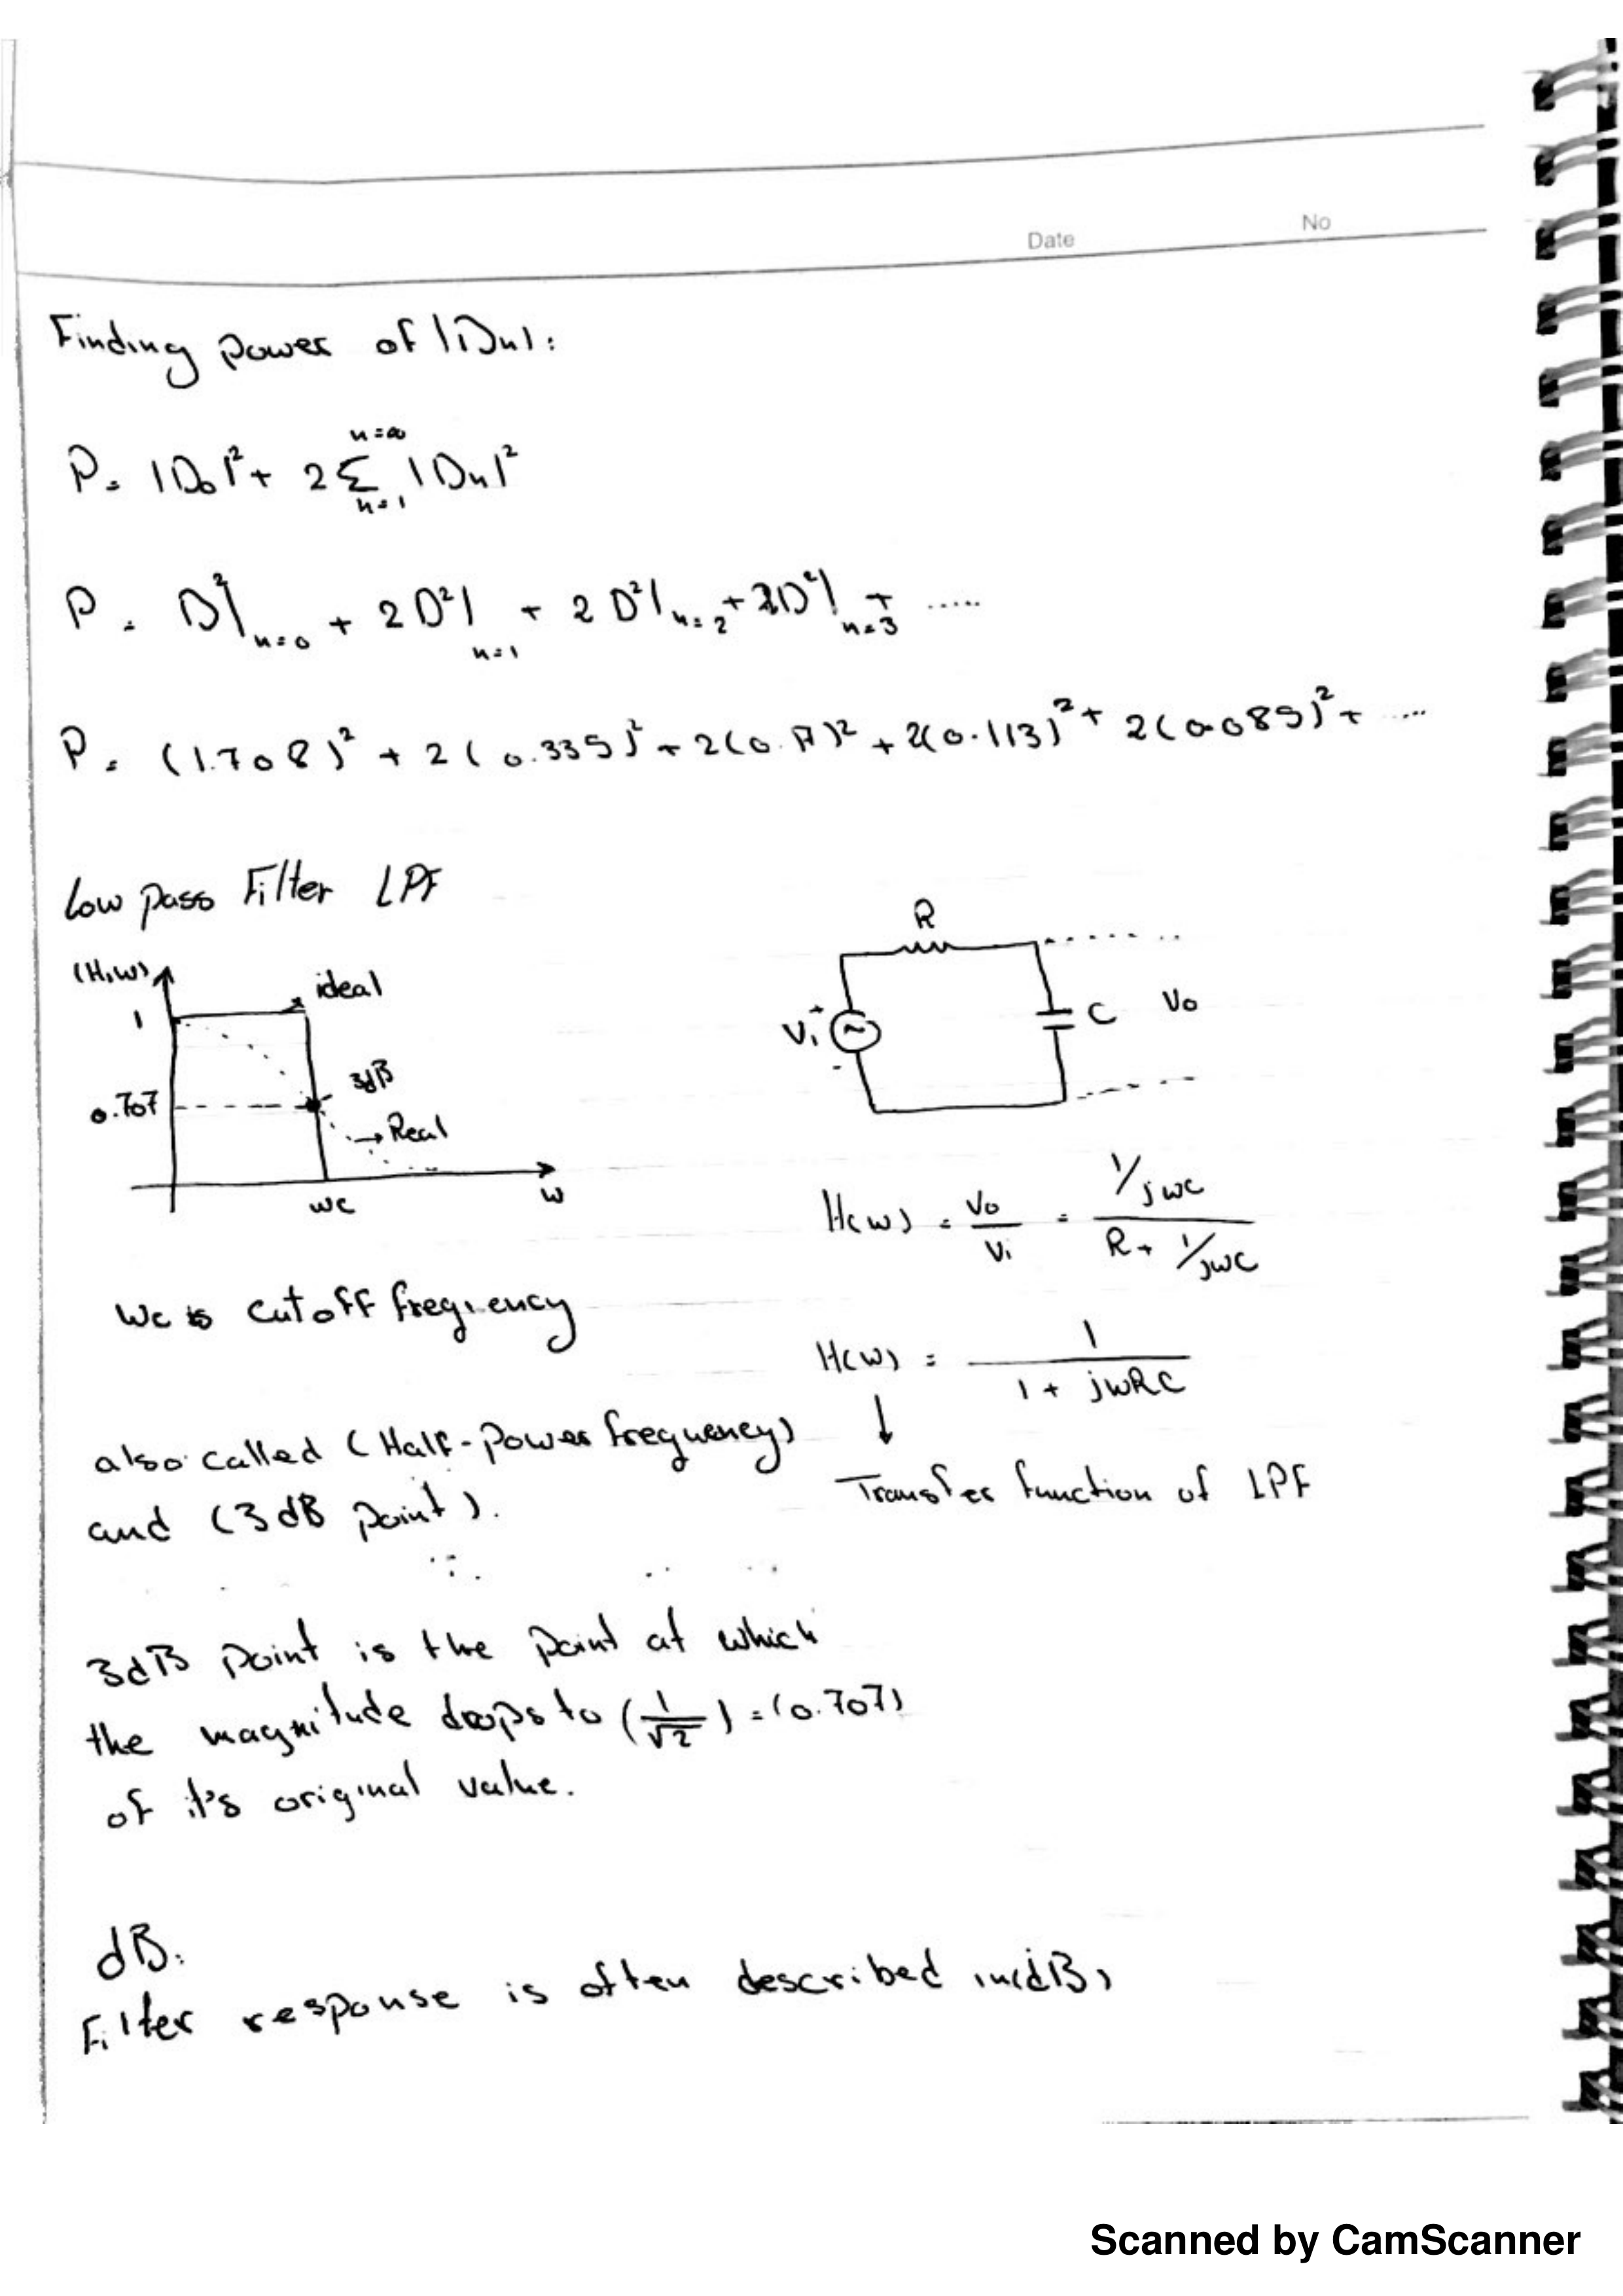 Date No
Finding power of |Dn|:
P = |D₀|² + 2 Σ_{n=1}^{n=∞} |Dn|²
P = D²|_{n=0} + 2D²|_{n=1} + 2D²|_{n=2} + 2D²|_{n=3} + .....
P = (1.708)² + 2(0.335)² + 2(0.17)² + 2(0.113)² + 2(0.085)² + .....
Low pass Filter LPF
(H,w)
ideal
1
3dB
0.707
Real
wc
w
R
Vi + -
C
Vo
H(w) = Vo/Vi = (1/jwc)/(R + 1/jwc)
wc is cutoff frequency
H(w) = 1/(1 + jwRC)
also called (Half-power frequency)
and (3dB point).
↓
Transfer function of LPF
3dB point is the point at which
the magnitude drops to (1/√2) = (0.707)
of it's original value.
dB:
Filter response is often described in(dB)
Scanned by CamScanner